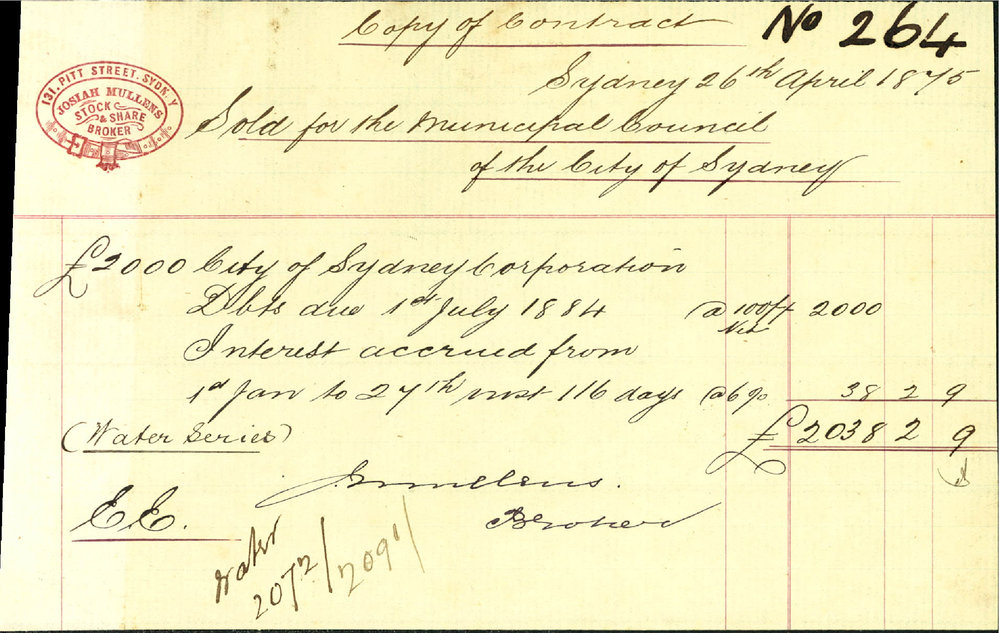 Copy of Contract
No 264
131. PITT STREET. SYDN. Y
JOSIAH MULLENS
STOCK
& SHARE
BROKER
Sydney 26th April 1875
Sold for the Municipal Council
of the City of Sydney
£2000 City of Sydney Corporation
Dbts due 1st July 1884 @ 100/- 2000
Nett
Interest accrued from
1st Jan to 27th inst 116 days @ 6% 38 2 9
(Water Series) £2038 2 9
JMullens.
Broker
E.E.
Water
2072/2091/